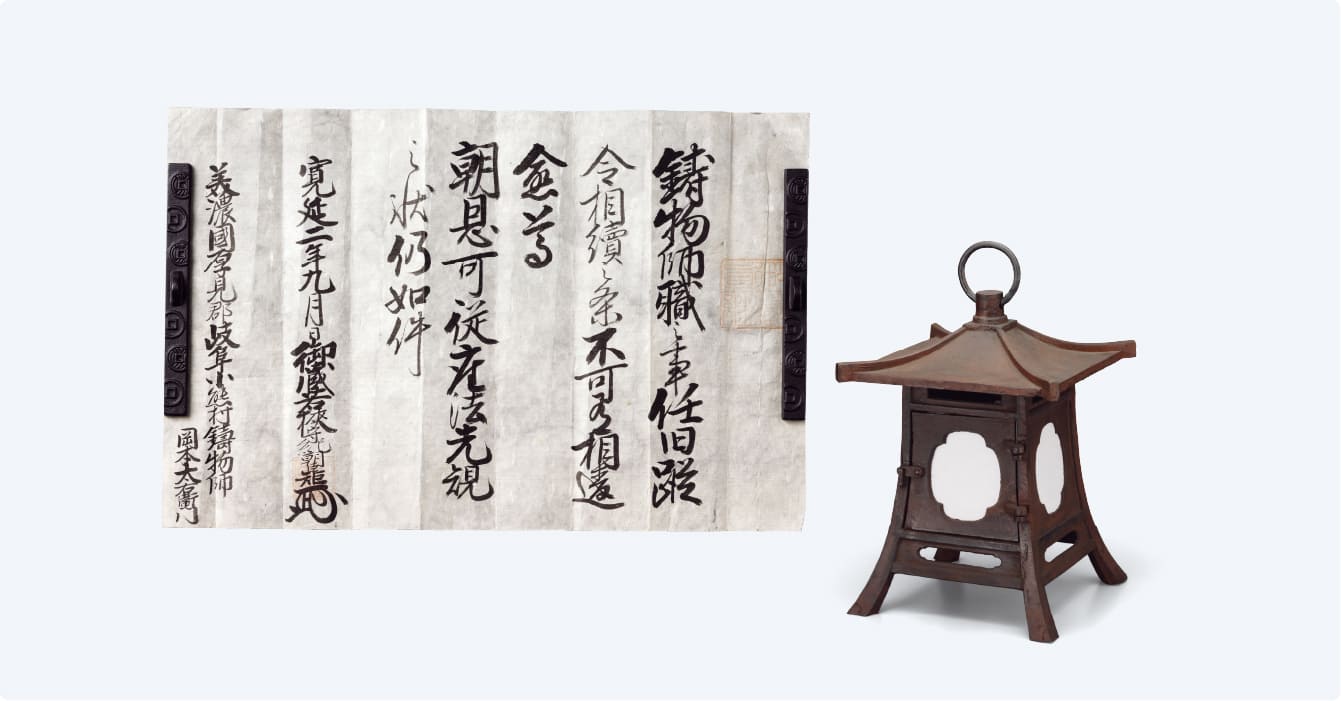 鋳物師職之事任旧蹤
令相續之条不可有相違
愈等
朝恩可従座法先規
之状仍如件
寛延二年九月日
美濃國厚見郡岐阜小熊村鋳物師
岡本太右衛門